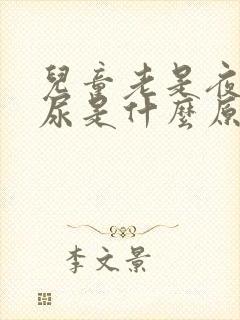 兒童老是夜
尿是什麼原
李文景